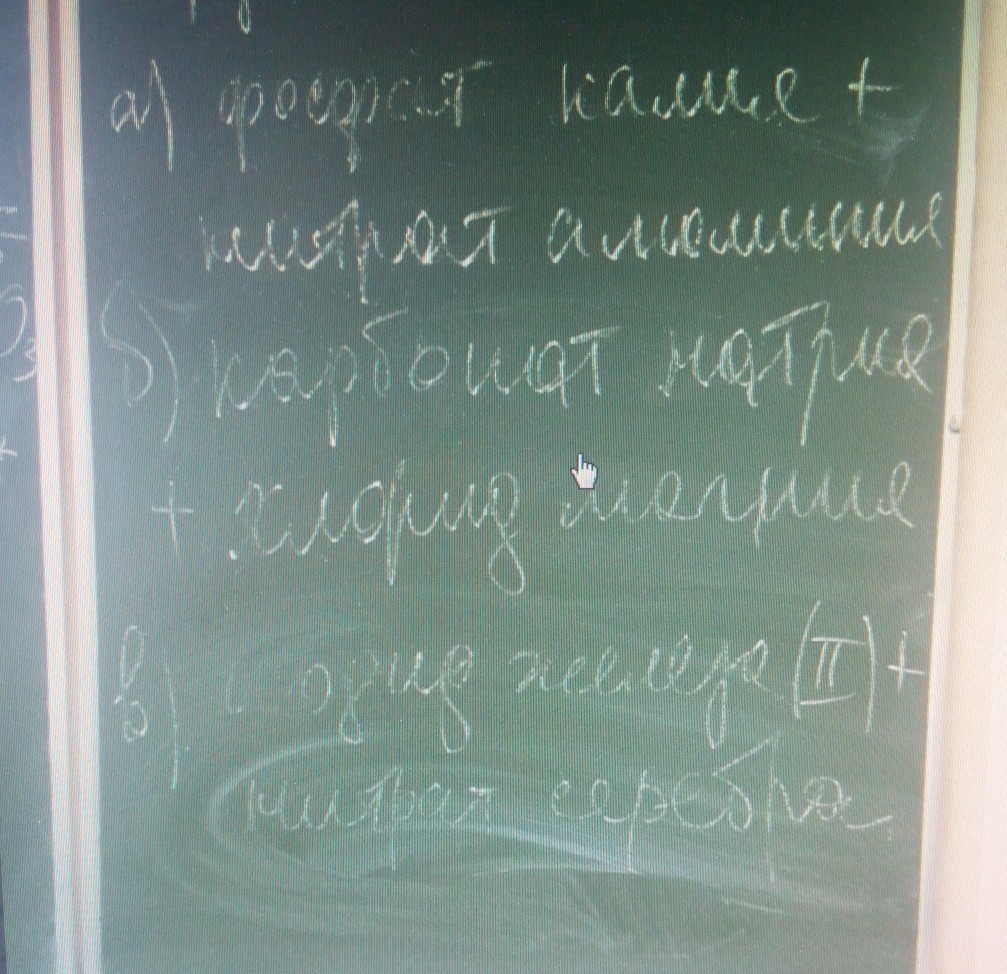 а) фосфат калия +
нитрат алюминия
б) карбонат натрия
+ хлорид магния
в) иодид железа (II) +
нитрат серебра